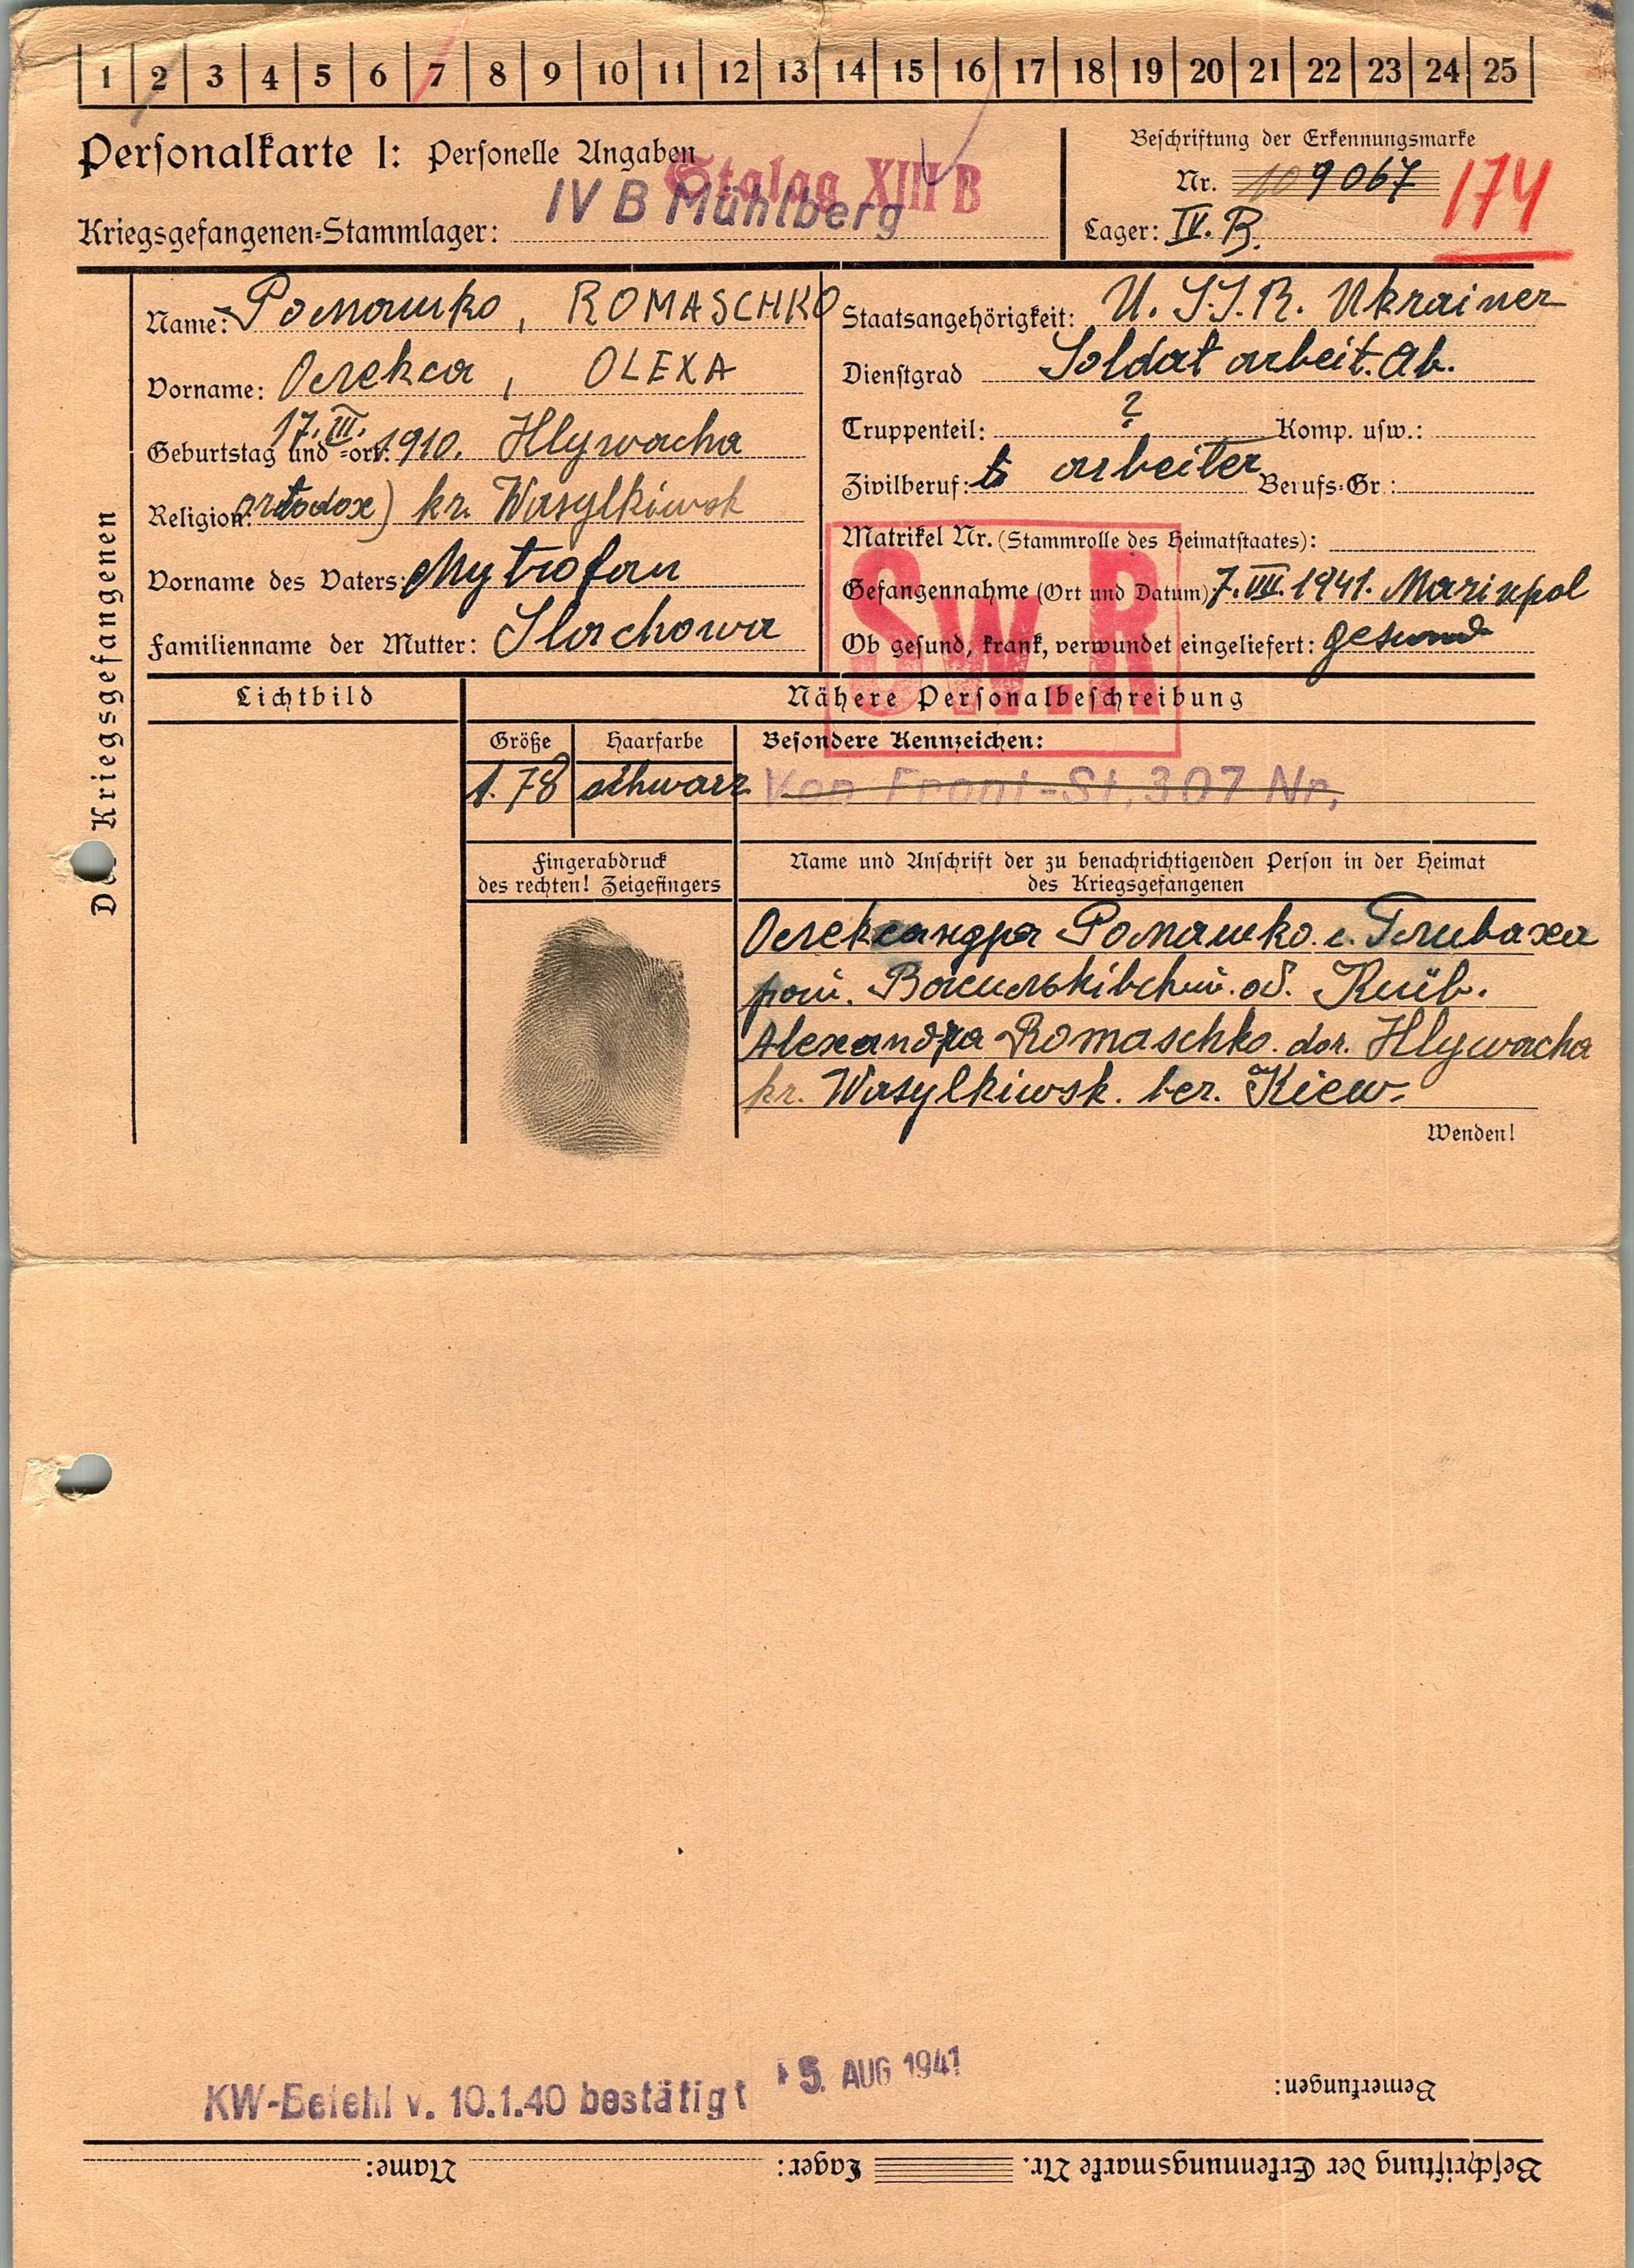 1 2 3 4 5 6 7 8 9 10 11 12 13 14 15 16 17 18 19 20 21 22 23 24 25
Personalkarte I: Personelle Angaben
Stalag XIII B
IV B Mühlberg
Kriegsgefangenen-Stammlager:
Beschriftung der Erkennungsmarke
Nr. 109067
174
Lager: IV. B.
Des Kriegsgefangenen
Name: Ромашко, ROMASCHKO
Vorname: Олекса, OLEXA
Geburtstag und -ort: 17. III. 1910. Hlywacha
Religion: ortodox) kr. Wasylkiwsk
Vorname des Vaters: Mytrofan
Familienname der Mutter: Slachowa
Staatsangehörigkeit: U. S.S.R. Ukrainer
Dienstgrad Soldat arbeit. Ab.
Truppenteil: ? Komp. usw.:
Zivilberuf: arbeiter Berufs-Gr.:
Matrikel Nr. (Stammrolle des Heimatstaates):
Gefangennahme (Ort und Datum): 7. VIII. 1941. Mariupol
Ob gesund, krank, verwundet eingeliefert: gesund
Sw.R
Lichtbild
Nähere Personalbeschreibung
Größe
Haarfarbe
Besondere Kennzeichen:
1.78
schwarz
Von Front-St. 307 Nr.
Fingerabdruck
des rechten! Zeigefingers
Name und Anschrift der zu benachrichtigenden Person in der Heimat
des Kriegsgefangenen
Олександра Ромашко. с. Гливаха
рай. Васильківський. об. Київ.
Alexandra Romaschko. dor. Hlywacha
kr. Wasylkiwsk. ber. Kiew.
Wenden!
KW-Befehl v. 10.1.40 bestätigt
5. AUG 1941
Bemerkungen:
Beschriftung der Erkennungsmarke Nr. Lager: Name: